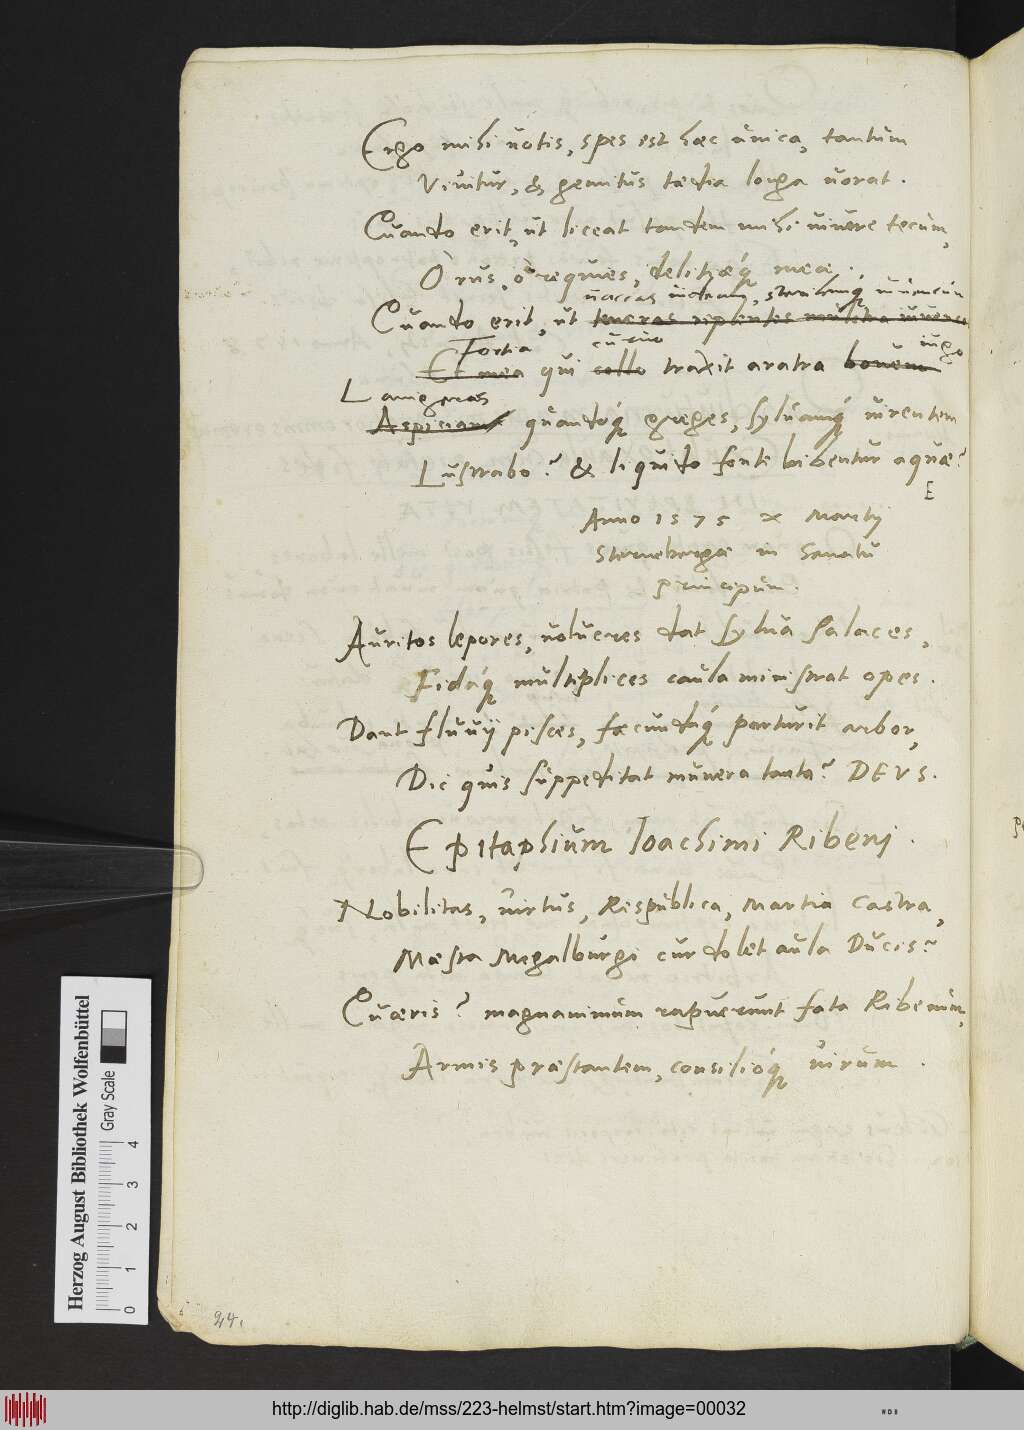 Ergo mihi uotis, spes est hæc unica, tantum
Viuitur, & gemitus tædia longa uorat.
Cuando erit, ut liceat tandem mihi uiuere tecum,
O rus, ô requies, delitiæq́ meæ.
uaccas uideam, iuuencum
Cuando erit, ut teneras iuuencos
Fortia curuo iugo
Et mea qui collo traxit aratra boum
Lanigeras
Aspiciam quandoq́ greges, syluamq́ uirentem
Lustrabo? & liquido fonte bibentur aquæ?
E
Anno 1575 x Martij
Sternebergæ in Senatu
principum.
Auritos lepores, uolucres dat sylua salaces,
Fidaq́ multiplices caula ministrat opes.
Dant fluuij pisces, fæcundaq́ parturit arbor,
Dic quis suppeditat munera tanta? DEVS.
Epitaphium Ioachimi Ribenj.
Nobilitas, uirtus, Respublica, Martia castra,
Mæsta Megalburgi cur dolet aula Ducis?
Cuæris? magnanimum rapuerunt fata Ribenum,
Armis præstantem, consilioq́ uirum.
24.
Herzog August Bibliothek Wolfenbüttel
Gray Scale
0 1 2 3 4
http://diglib.hab.de/mss/223-helmst/start.htm?image=00032